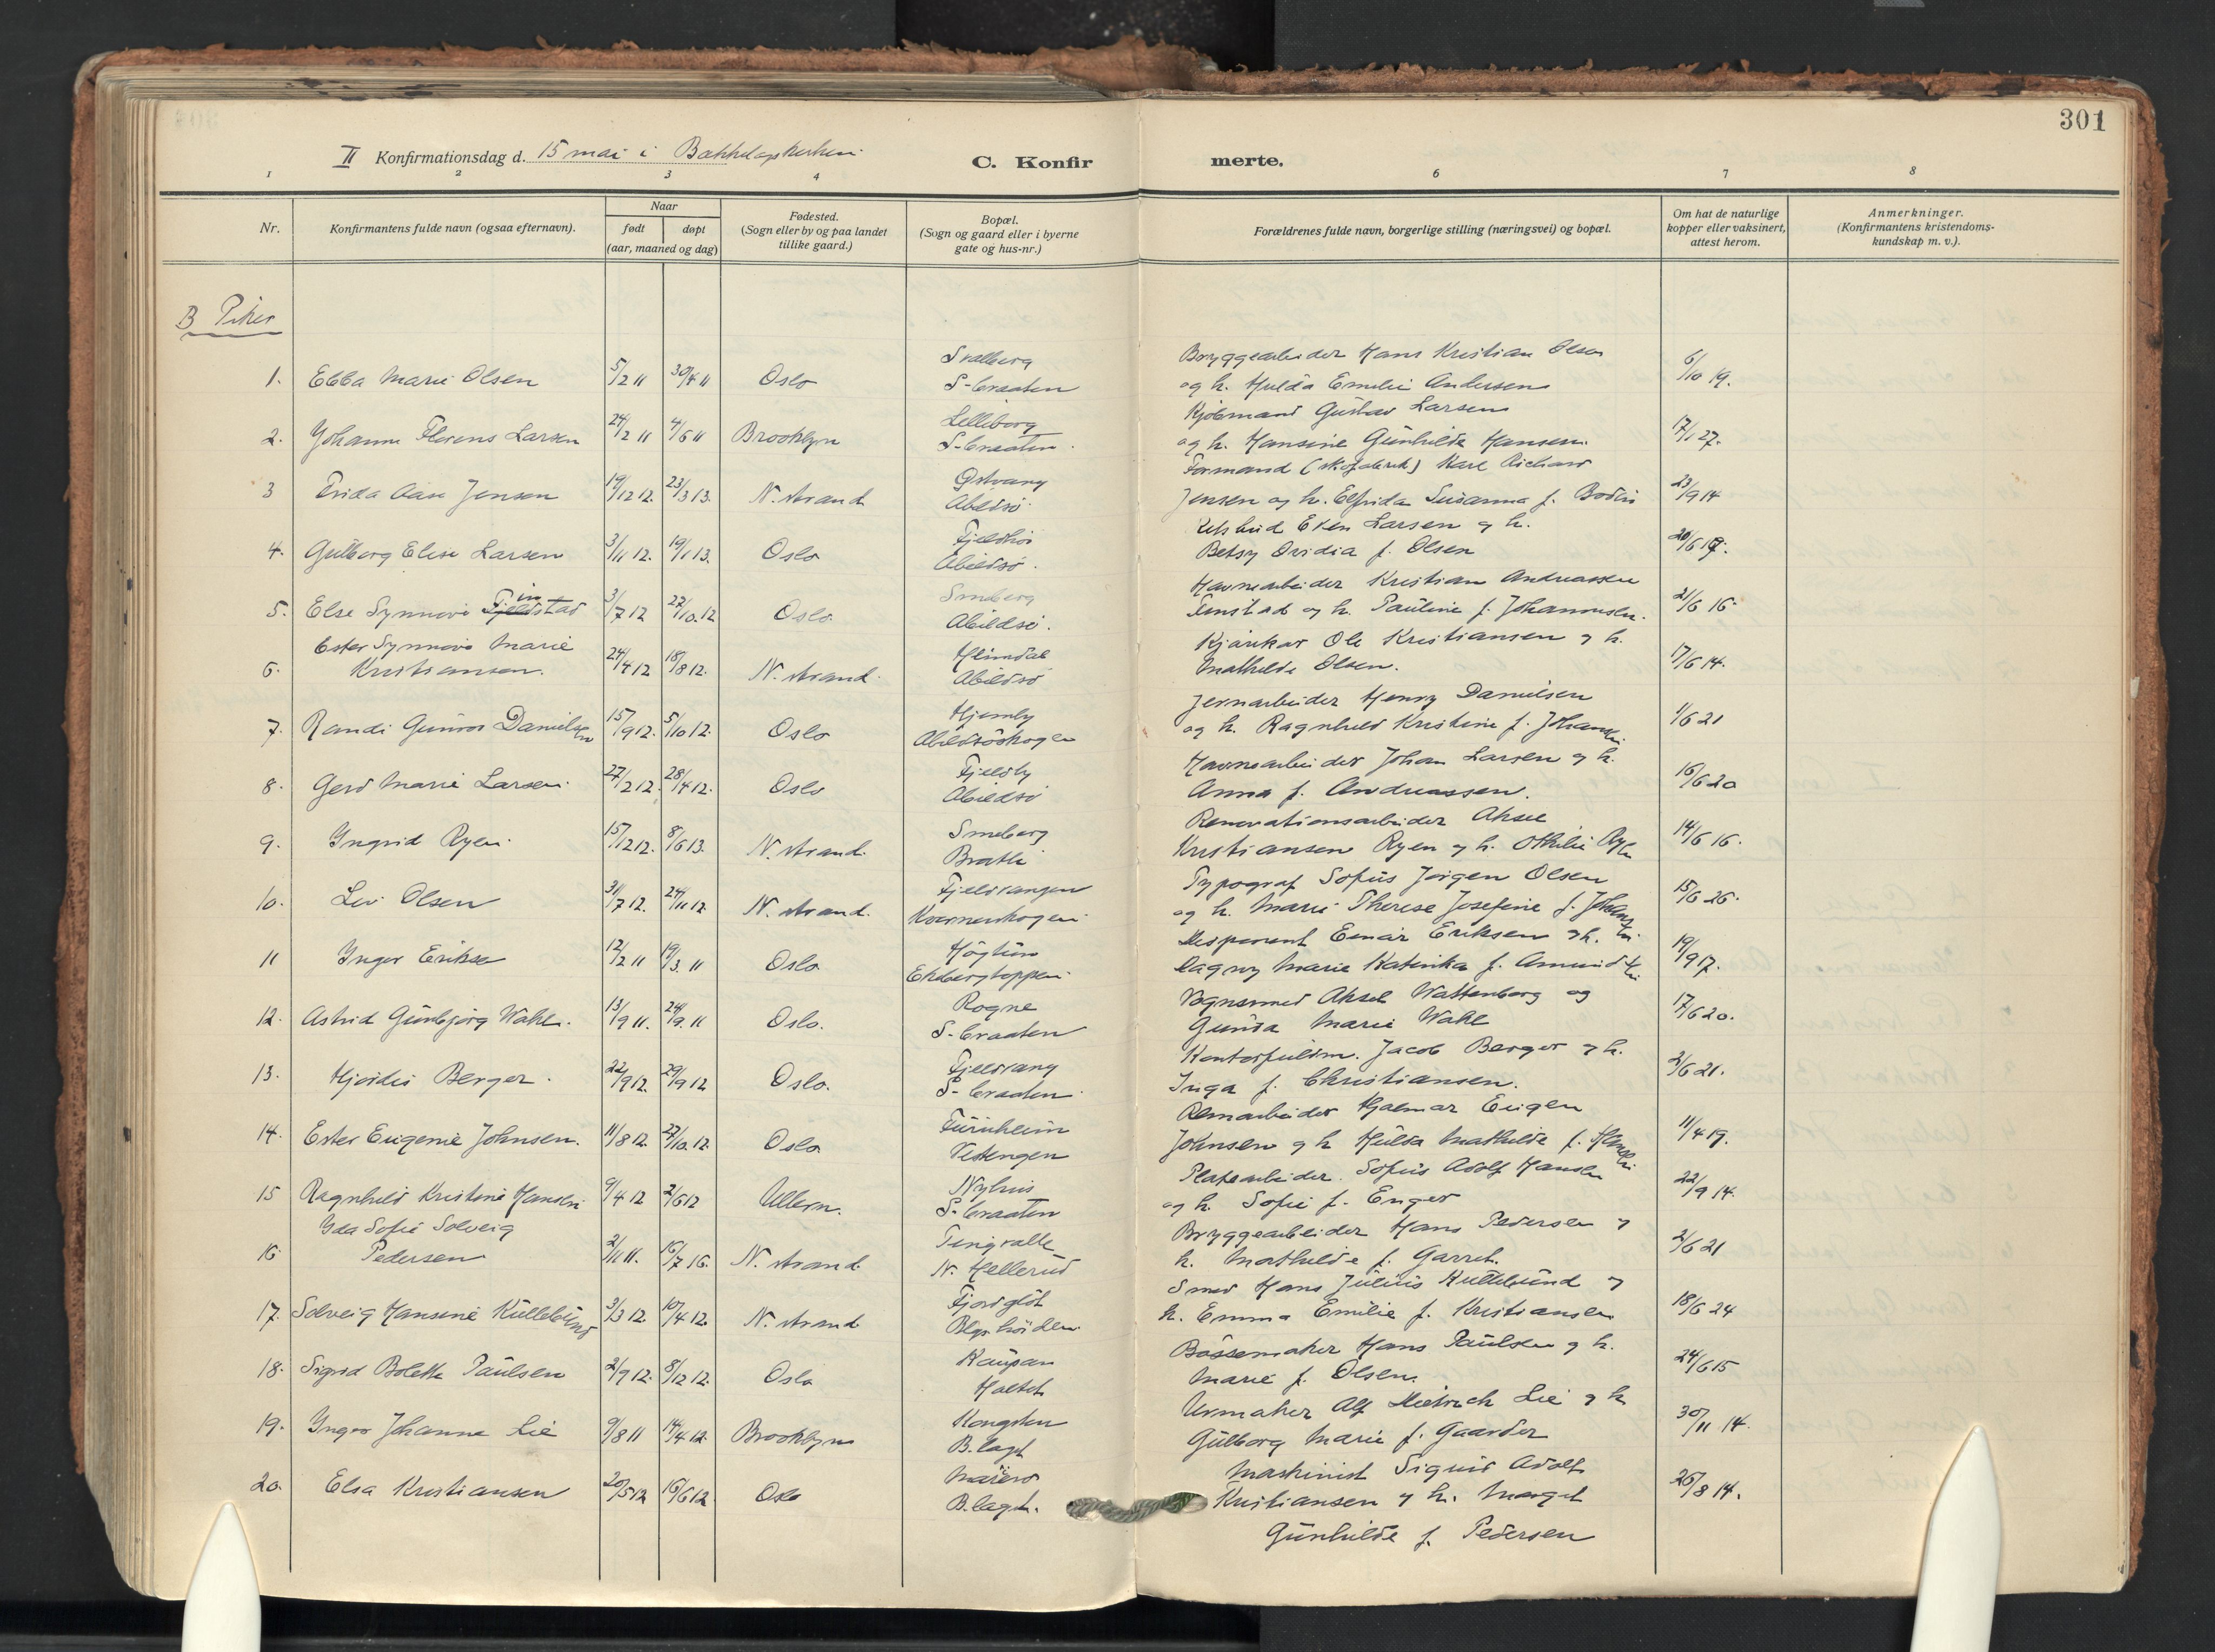 301
II Konfirmationsdag d. 15 mai i Bækkelagskirken
C. Konfirmerte.
1 2 3 4 6 7 8
Nr.
Konfirmantens fulde navn (ogsaa efternavn).
Naar
født døpt
(aar, maaned og dag)
Fødested.
(Sogn eller by og paa landet
tillike gaard.)
Bopæl.
(Sogn og gaard eller i byerne
gate og hus-nr.)
Forældrenes fulde navn, borgerlige stilling (næringsvei) og bopæl.
Om hat de naturlige
kopper eller vaksinert,
attest herom.
Anmerkninger.
(Konfirmantens kristendoms-
kundskap m. v.).
B Piker
Solberg Bryggearbeider Hans Kristian Olsen
1. Ebba Marie Olsen 5/2 11 30/4 11 Oslo S-braaten og h. Hulda Emilie Andersen 6/10 19.
Lilleborg Kjøbmand Gustav Larsen
2. Johanne Florens Larsen 24/2 11 4/6 11 Brooklyn S-braaten. og h. Hansine Gunhilde Hansen. 17/1 27.
Østvang Formand (skofabrik) Karl Richard
3 Frida Aase Jensen 19/12 12. 23/3 13. N. strand Abildsø. Jensen og h. Elfrida Susanna f. Bodin 23/9 14
Fjeldhøi Larsen og h.
4. Gulborg Elise Larsen 3/11 12. 19/1 13. Oslo Abildsø. Betsy Ovidia f. Olsen 20/6 19.
Smeberg Havnearbeider Kristian Andreassen
5. Else Synnøve Finstad 3/7 12 27/10. 12 Oslo Abildsø. Finstad og h. Pauline f. Johannesen. 21/6 16.
Ester Synnøve Marie Heimdal Kjørekar Ole Kristiansen og h.
6. Kristiansen. 24/4 12 18/8 12. N. strand. Abildsø Mathilde Olsen. 17/6 14.
Hjemly Jernarbeider Henry Danielsen
7. Randi Gunvor Danielsen 15/9 12. 5/10 12. Oslo Abildsøskogen og h. Ragnhild Kristine f. Johansen 1/6 21
Fjeldby Havnearbeider Johan Larsen og h.
8. Gerd Marie Larsen. 27/2 12. 28/4 12. Oslo Abildsø Anna f. Andreassen. 16/6 20
Smeberg Renovationsarbeider Aksel
9. Ingrid Ryen. 15/12 12. 8/6 13. N. strand. Bratli Kristiansen Ryen og h. Othilie Ryen 14/6 16.
Fjeldvangen Typograf Sofus Jørgen Olsen
10. Liv Olsen 31/7 12. 24/11 12 N. strand. Kvernerskogen og h. Marie Therese Josefine f. Johansen. 15/6 26.
Høgtun Disponent Einar Eriksen og h.
11 Inger Eriksen 12/2 11 19/3. 11 Oslo Ekebergtoppen. Dagny Marie Katinka f. Amundsen 19/9 17.
Rogne Vognsmed Aksel Wattenberg og
12. Astrid Gunbjørg Wahl. 13/9 11. 24/9. 11 Oslo. S-braaten Gunda Marie Wahl 17/6 20.
Fjeldvang Kontorfuldm. Jacob Berger og h.
13. Hjørdis Berger. 22/9 12. 29/9 12 Oslo. S-braaten. Inga f. Christiansen. 2/6 21.
Furuheim Hjalmar Eugen
14. Ester Eugenie Johnsen. 11/8 12. 27/10. 12. Oslo Vettengen Johnsen og h Hulda Mathilde f. Henriksen 11/4 19.
Nyhus Platearbeider. Sofus Adolf Hansen
15 Ragnhild Kristine Hansen 9/4 12 2/6 12 Ullern. S-braaten og h. Sofie f. Enger 22/9 14.
Ida Sofie Solveig Tingvalla Bryggearbeider Hans Pedersen og
16. Pedersen 2/11 11. 16/7 16. N. strand N. Hellerud h. Mathilde f. Garseth. 2/6 21
Fjordgløt Smed Hans Julius Kullebund og
17. Solveig Hansine Kullebund 3/3 12. 10/4 12. N. strand Blgs. høiden. h. Emma Emilie f. Kristiansen 18/6 24
Kaupan Bøssemaker Hans Paulsen og h.
18. Sigrid Bolette Paulsen 2/9 12. 8/12 12. Oslo Holtet Marie f. Olsen. 24/6 15
Kongsten Urmaker Alf Dietrich Lie og h
19. Inger Johanne Lie 9/8 11 14/4 12. Brooklyn B.lagt Gulborg Marie f. Gaarder 30/11 14.
Maskinist Sigurd Adolf
20. Elsa Kristiansen 20/5 12 16/6 12. Oslo B.lagt. Kristiansen og h. Margit 26/8 14.
Gunhilde f. Pedersen